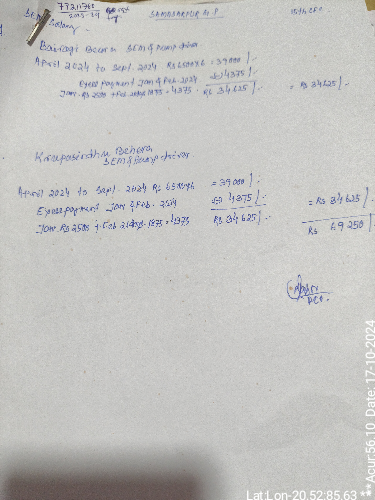 SARASARPUR G.P.
15th CFC
Bairagi Behera SEM & Pump driver
April 2024 to Sept. 2024 Rs 6500x6 = 39000/-
Excess payment Jan & Feb. 2024 4375/-
Jan. Rs 2500 + Feb 1875 = 4375. Rs 34625/- = Rs 34625/-
Krupasindhu Behera
SEM & Pump driver
April 2024 to Sept. 2024 Rs 6500x6 = 39000/-
Excess payment Jan & Feb. 2024 4375/- = Rs 34625/-
Jan. Rs 2500 + Feb 1875 = 4375 Rs 34625/-
Rs 69250/-
PEO.
Lat:Lon-20.52:85.63 *** Acur:56.10 Date:17-10-2024